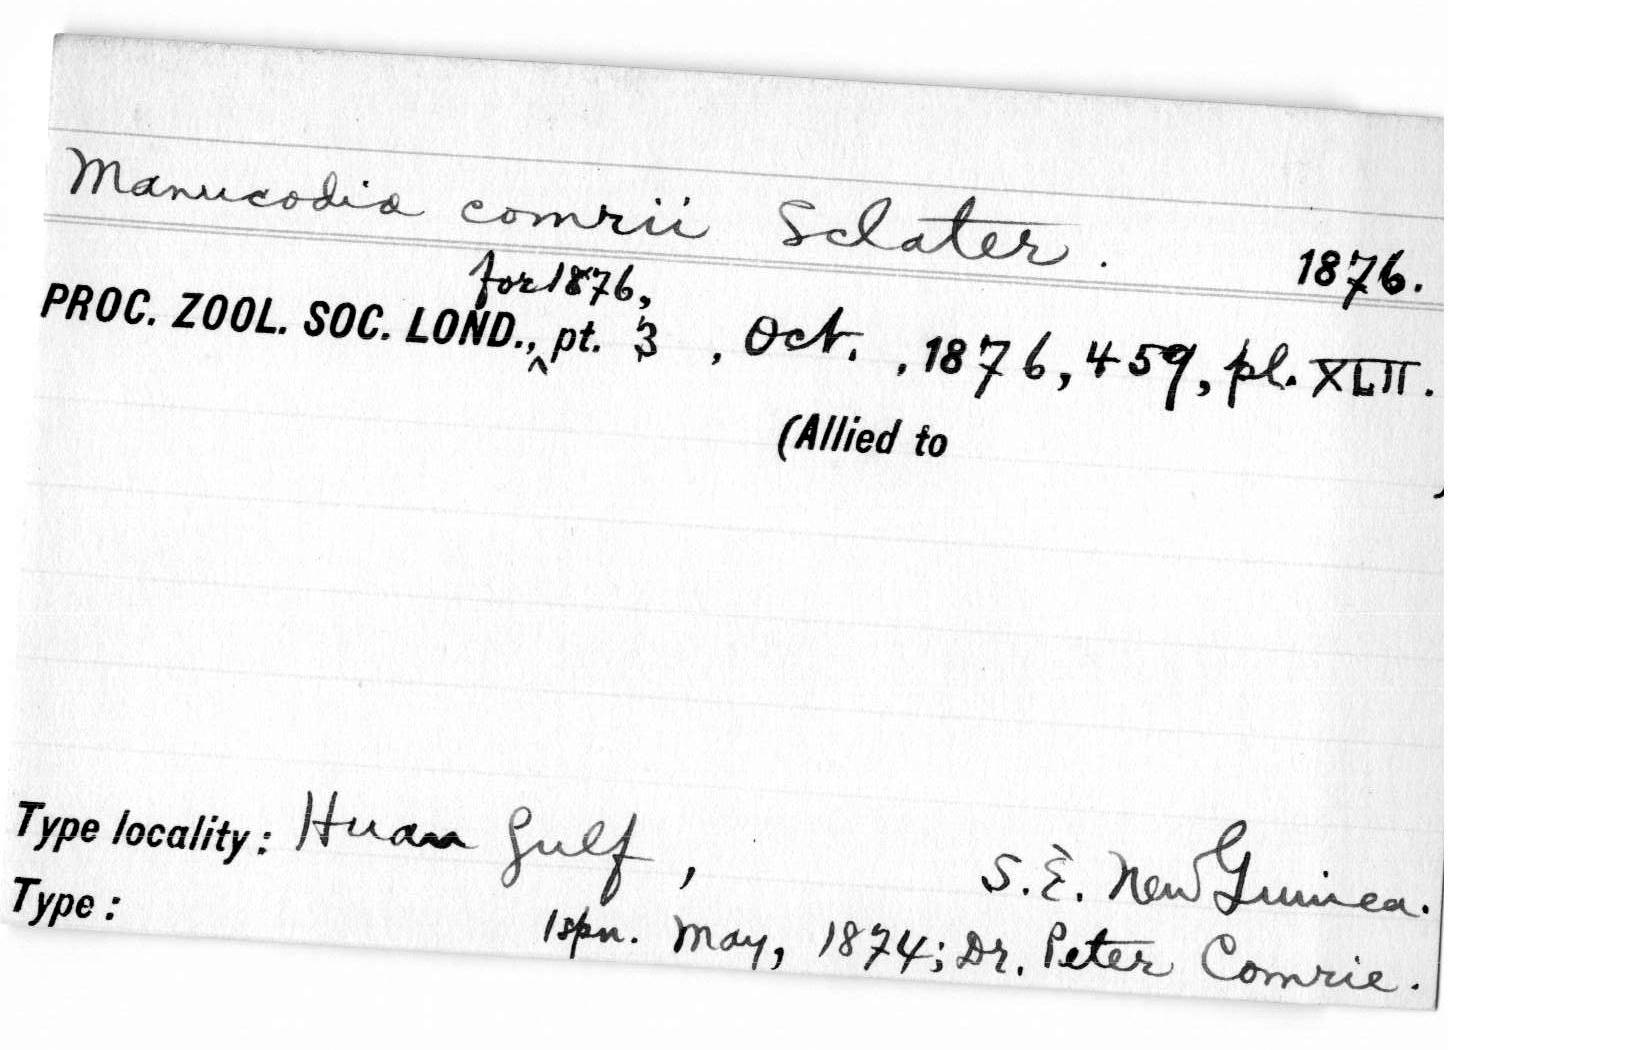 Manucodia comrii Sclater. 1876.
for 1876,
PROC. ZOOL. SOC. LOND., ^ pt. 3 , Oct. , 1876, 459, pl. XLII.
(Allied to )
Type locality: Huan Gulf, S.E. New Guinea.
Type: 1 spn. May, 1874; Dr. Peter Comrie.